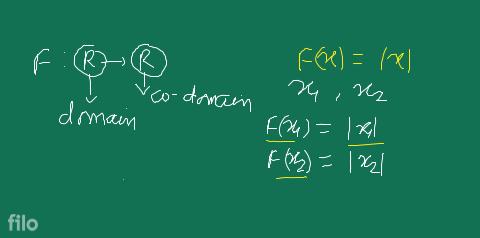 F : R → R
domain
co-domain
F(x) = |x|
x₁ , x₂
F(x₁) = |x₁|
F(x₂) = |x₂|
filo